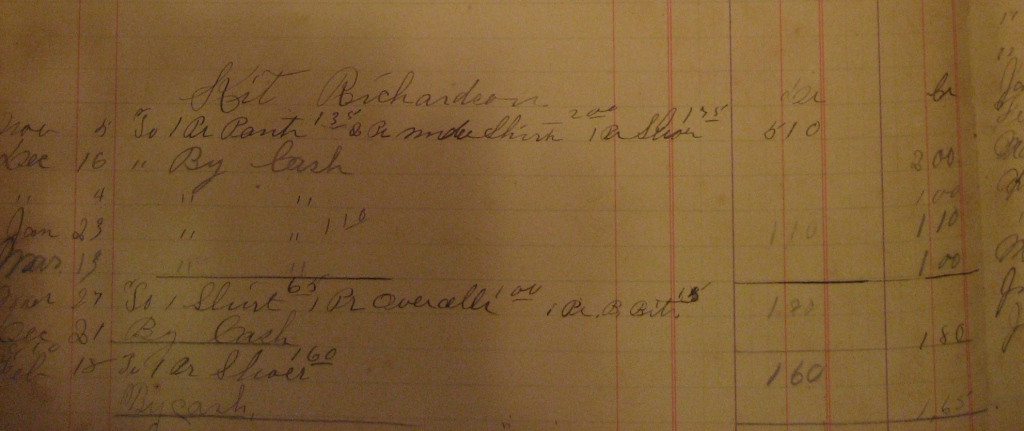 Kit Richardson Dr Cr
Nov 5 To 1 Pr Pants 135 2 Pr under Shirts 200 1 Pr Shoes 135 510
Dec 16 " By Cash 200
" 4 " " 100
Jan 23 " " 110 110 110
Mar 19 " " 100
Mar 27 To 1 Shirt 65 1 Pr Overalls 100 1 Pr 15 180
Dec 21 By Cash 180
Feb 18 To 1 Pr Shoes 160 160
By Cash 165